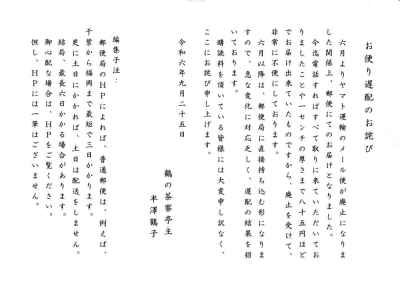 お便り遅配のお詫び
六月よりヤマト運輸のメール便が廃止になりま
した関係上、郵便にてのお届けとなりました。
今迄電話すればすべて取りに来ていただいてお
りましたことや一センチの厚さまで八十五円ほど
でお届け出来ていたものですから、廃止を受けて、
非常に不便にしております。
六月以降は、郵便局に直接持ち込む形になりま
すので、急な変化に対応乏しく、遅配の結果を招
いております。
購読料を頂いている皆様には大変申し訳なく、
ここにお詫び申し上げます。
令和六年九月二十五日
鶴の茶寮亭主
半澤鶴子
編集子注:
郵便局のHPによれば、普通郵便は、例えば、
千葉から福岡まで最短で三日かかります。
更に土日にかかれば、土日は配送をしません。
結局、最長六日かかる場合があります。
御心配な場合は、HPをご覧ください。
但し、HPには一筆はございません。